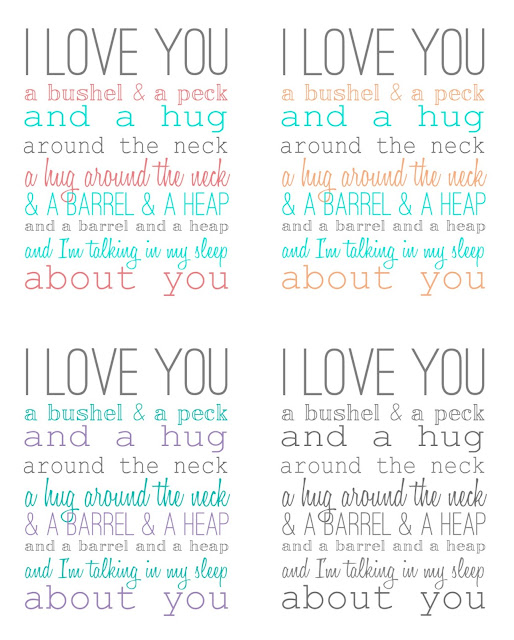 I LOVE YOU
a bushel & a peck
and a hug
around the neck
a hug around the neck
& A BARREL & A HEAP
and a barrel and a heap
and I'm talking in my sleep
about you
I LOVE YOU
a bushel & a peck
and a hug
around the neck
a hug around the neck
& A BARREL & A HEAP
and a barrel and a heap
and I'm talking in my sleep
about you
I LOVE YOU
a bushel & a peck
and a hug
around the neck
a hug around the neck
& A BARREL & A HEAP
and a barrel and a heap
and I'm talking in my sleep
about you
I LOVE YOU
a bushel & a peck
and a hug
around the neck
a hug around the neck
& A BARREL & A HEAP
and a barrel and a heap
and I'm talking in my sleep
about you